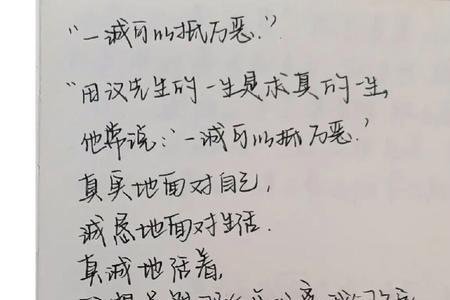 “一诚可以抵万恶.”
“用汉先生的一生是求真的一生,
他常说:“一诚可以抵万恶.”
真实地面对自己,
诚恳地面对生活.
真诚地活着,